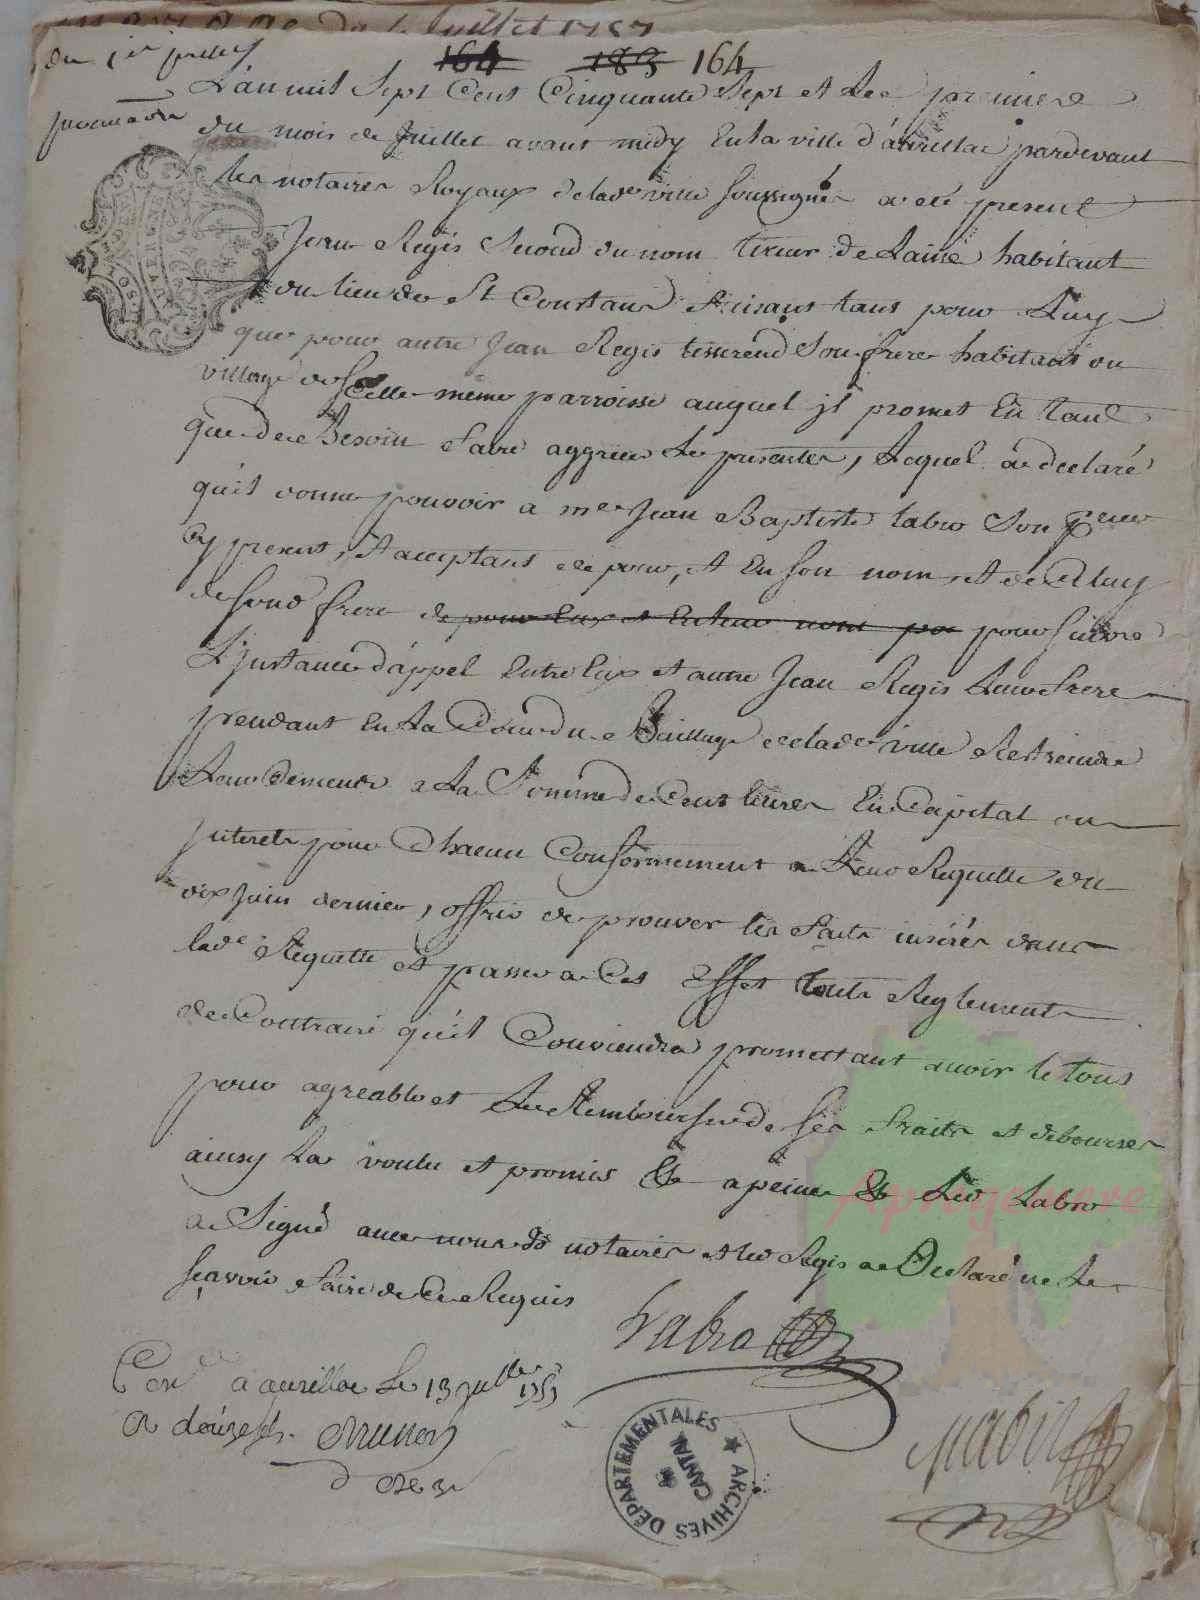 du 1er juillet
procura[ti]on
164 183 164
L'an mil Sept Cent Cinquante Sept et Le premier
du mois de Juillet avant midy En la ville d'aurillac pardevant
les notaires Royaux de lade ville soussignés a eté present
Jean Regis Second du nom tireur de Laine habitant
du lieu de St Constans faisant tant pour Luy
que pour autre Jean Regis tisserend Son frere habitant du
village de Celle même parroisse auquel il promet En tant
que de Besoin faire aggreer Les presentes, Lequel a declaré
qu'il donne pouvoir a me Jean Baptiste labro Son Preur
Cy present, Et acceptant de pour, et En son nom et de Celuy
de sond frere de pour Eux et En leur nom po poursuivre
L'Instance d'appel Entre Eux et autre Jean Regis Leur frere
pendant En La Cour du Bailliage de lade ville Restreindre
Leur demende a La Somme de Cent livres En Capital ou
Interets pour Chacun Conformement a Leur Requette du
dix Juin dernier, offrir de prouver les faits inserés dans
lade Requette et passer a Cet Effet touts Reglements
de Contraire qu'il Conviendra promettant avoir le tout
pour agreable et Le Rembourser de ses fraits et debourses
ainsy La voulu et promis &a a peine &a Led Labro
a Signé avec nous ds notaires et led Regis a Declaré ne Le
scavoir faire de Ce Requis
Labro
Con.lé a aurillac Le 13 Juillet 1757
R douze s.
ARCHIVES DÉPARTEMENTALES
CANTAL
Aprogemere